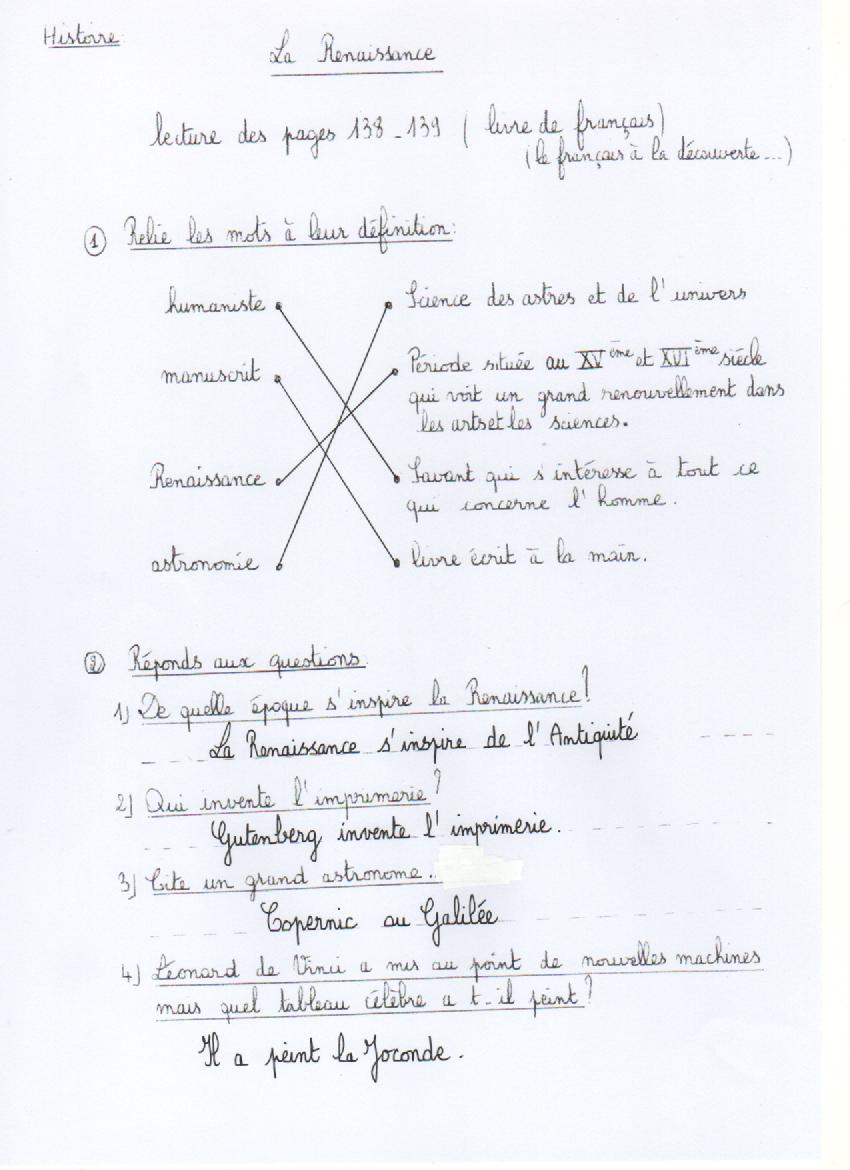 Histoire
La Renaissance
lecture des pages 138-139 ( livre de français)
(le français à la découverte...)
① Relie les mots à leur définition:
humaniste
Science des astres et de l'univers
manuscrit
Période située au XVème et XVIème siècle
qui voit un grand renouvellement dans
les arts et les sciences.
Renaissance
Savant qui s'intéresse à tout ce
qui concerne l'homme.
astronomie
livre écrit à la main.
② Réponds aux questions
1) De quelle époque s'inspire la Renaissance?
La Renaissance s'inspire de l'Antiquité
2) Qui invente l'imprimerie?
Gutenberg invente l'imprimerie.
3) Cite un grand astronome.
Copernic ou Galilée
4) Léonard de Vinci a mis au point de nouvelles machines
mais quel tableau célèbre a t-il peint?
Il a peint la Joconde.